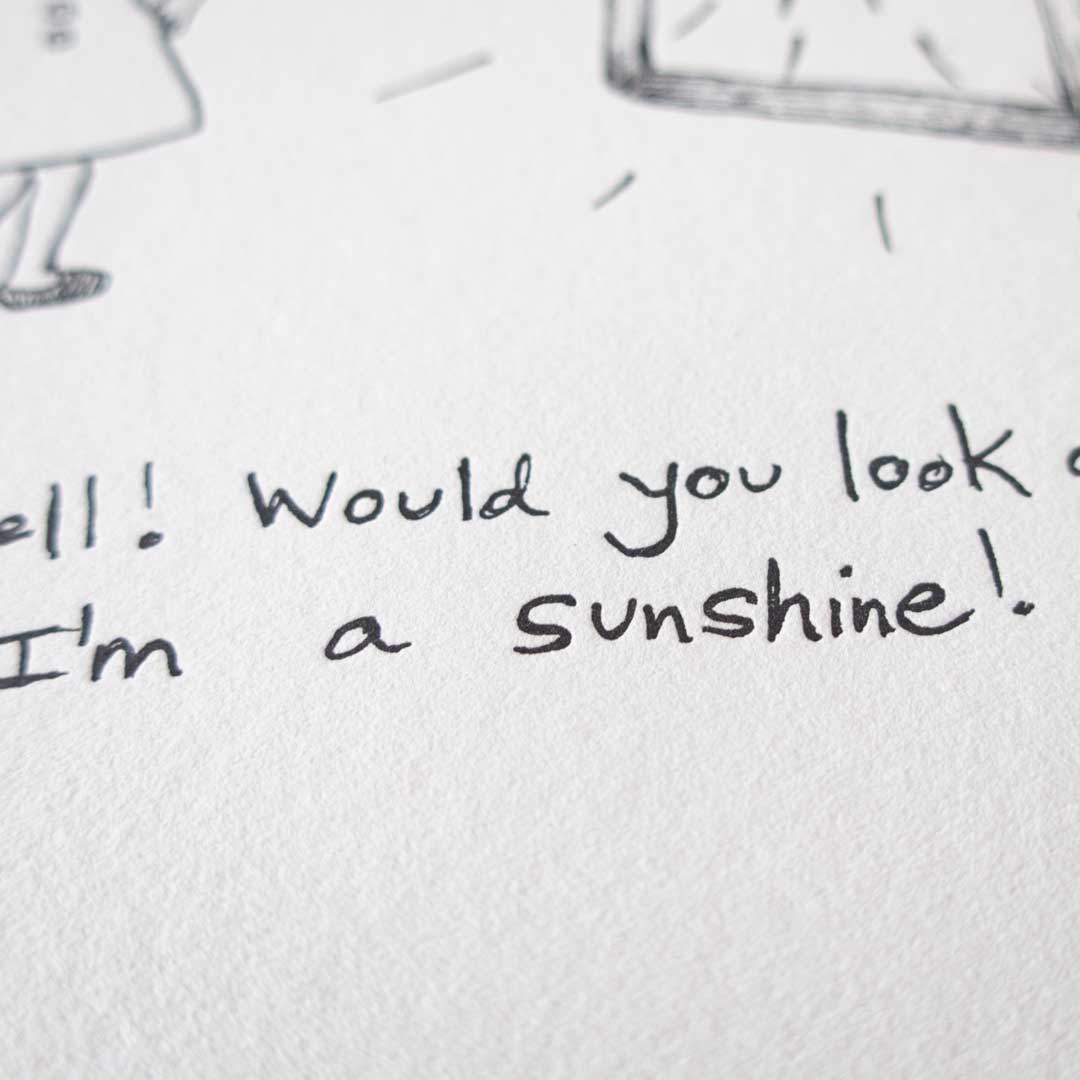 ell! Would you look
I'm a sunshine!